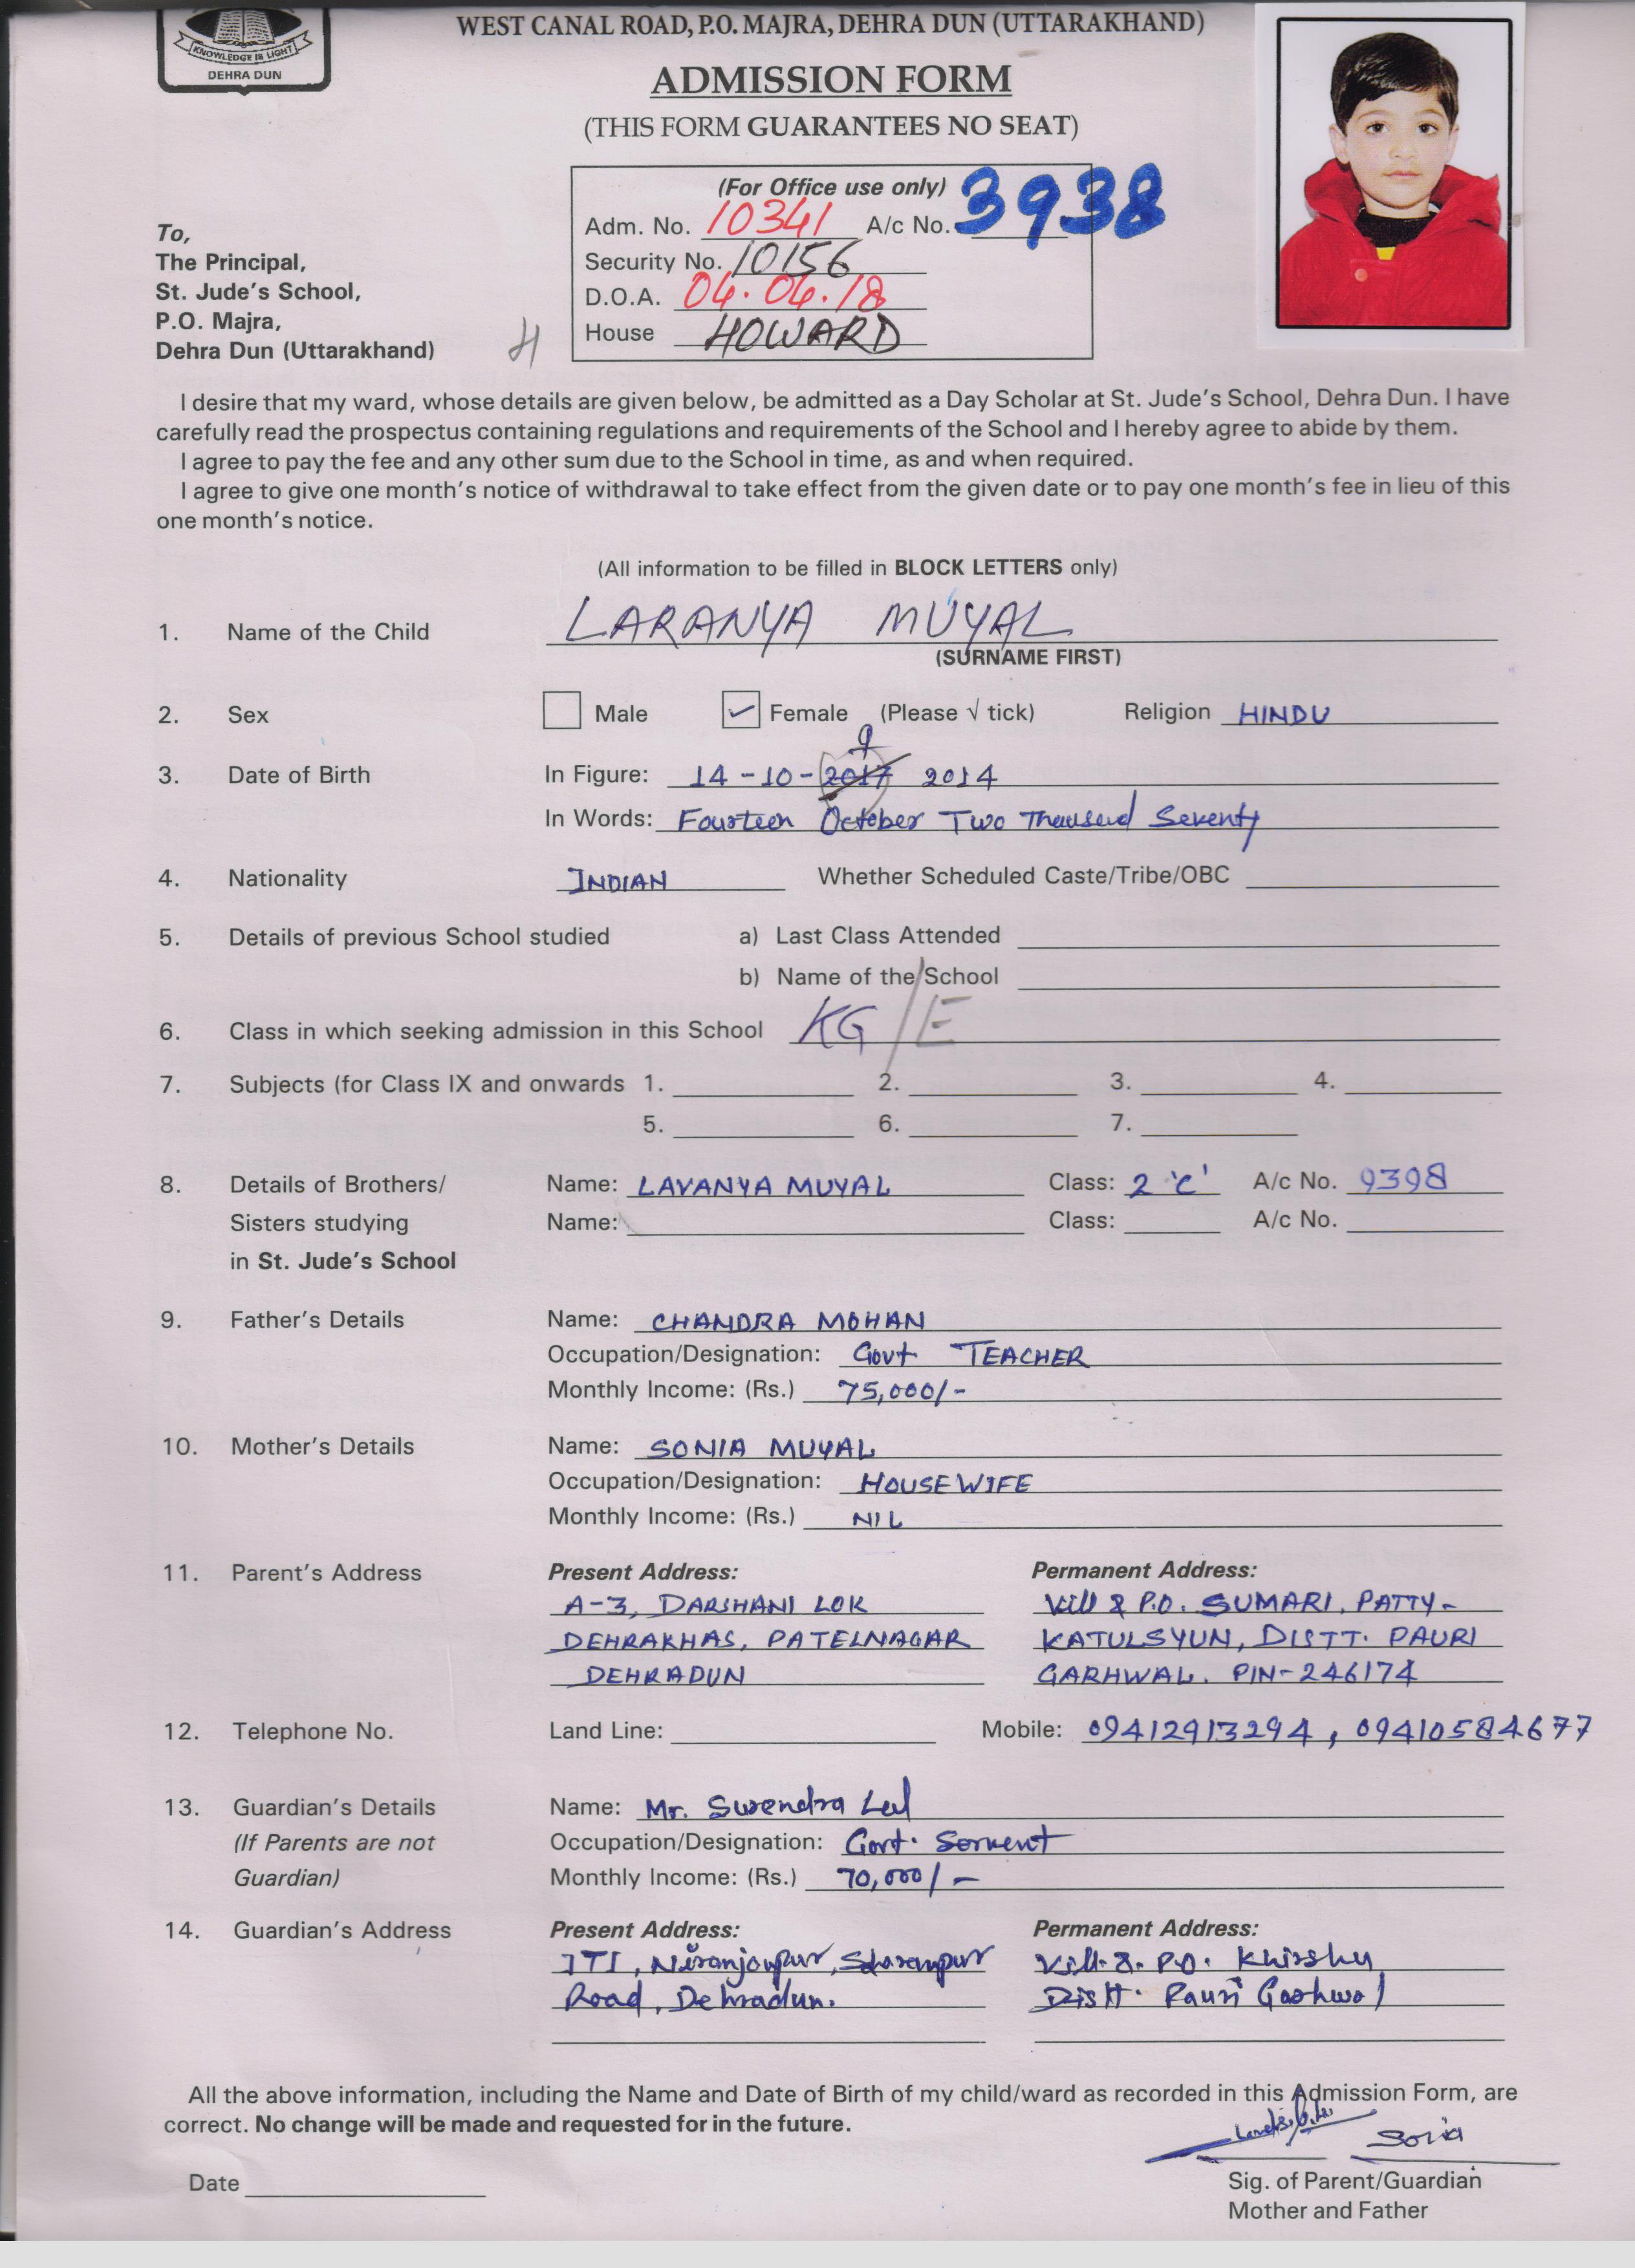 KNOWLEDGE IS LIGHT
DEHRA DUN
WEST CANAL ROAD, P.O. MAJRA, DEHRA DUN (UTTARAKHAND)
ADMISSION FORM
(THIS FORM GUARANTEES NO SEAT)
(For Office use only)
Adm. No. 10341 A/c No. 3938
Security No. 10156
D.O.A. 04.04.18
House HOWARD
To,
The Principal,
St. Jude's School,
P.O. Majra,
Dehra Dun (Uttarakhand)
H
I desire that my ward, whose details are given below, be admitted as a Day Scholar at St. Jude's School, Dehra Dun. I have
carefully read the prospectus containing regulations and requirements of the School and I hereby agree to abide by them.
I agree to pay the fee and any other sum due to the School in time, as and when required.
I agree to give one month's notice of withdrawal to take effect from the given date or to pay one month's fee in lieu of this
one month's notice.
(All information to be filled in BLOCK LETTERS only)
1. Name of the Child LARANYA MUYAL
(SURNAME FIRST)
2. Sex Male Female (Please √ tick) Religion HINDU
3. Date of Birth In Figure: 14-10-2017 2014
In Words: Fourteen October Two Thousend Seventy
4. Nationality INDIAN Whether Scheduled Caste/Tribe/OBC
5. Details of previous School studied a) Last Class Attended
b) Name of the School
6. Class in which seeking admission in this School KG/E
7. Subjects (for Class IX and onwards 1. 2. 3. 4.
5. 6. 7.
8. Details of Brothers/ Name: LAVANYA MUYAL Class: 2 'C' A/c No. 9398
Sisters studying Name: Class: A/c No.
in St. Jude's School
9. Father's Details Name: CHANDRA MOHAN
Occupation/Designation: Govt TEACHER
Monthly Income: (Rs.) 75,000/-
10. Mother's Details Name: SONIA MUYAL
Occupation/Designation: HOUSEWIFE
Monthly Income: (Rs.) NIL
11. Parent's Address Present Address: Permanent Address:
A-3, DARSHANI LOK Vill & P.O. SUMARI, PATTY-
DEHRAKHAS, PATELNAGAR KATULSYUN, DISTT. PAURI
DEHRADUN GARHWAL. PIN-246174
12. Telephone No. Land Line: Mobile: 09412913294, 09410584677
13. Guardian's Details Name: Mr. Surendra Lal
(If Parents are not Occupation/Designation: Govt. Servent
Guardian) Monthly Income: (Rs.) 70,000/-
14. Guardian's Address Present Address: Permanent Address:
ITI, Niranjanpur, Sharanpur Vill. & P.O. Khirshu
Road, Dehradun. Distt. Pauri Garhwal
All the above information, including the Name and Date of Birth of my child/ward as recorded in this Admission Form, are
correct. No change will be made and requested for in the future.
Sonia
Date Sig. of Parent/Guardian
Mother and Father